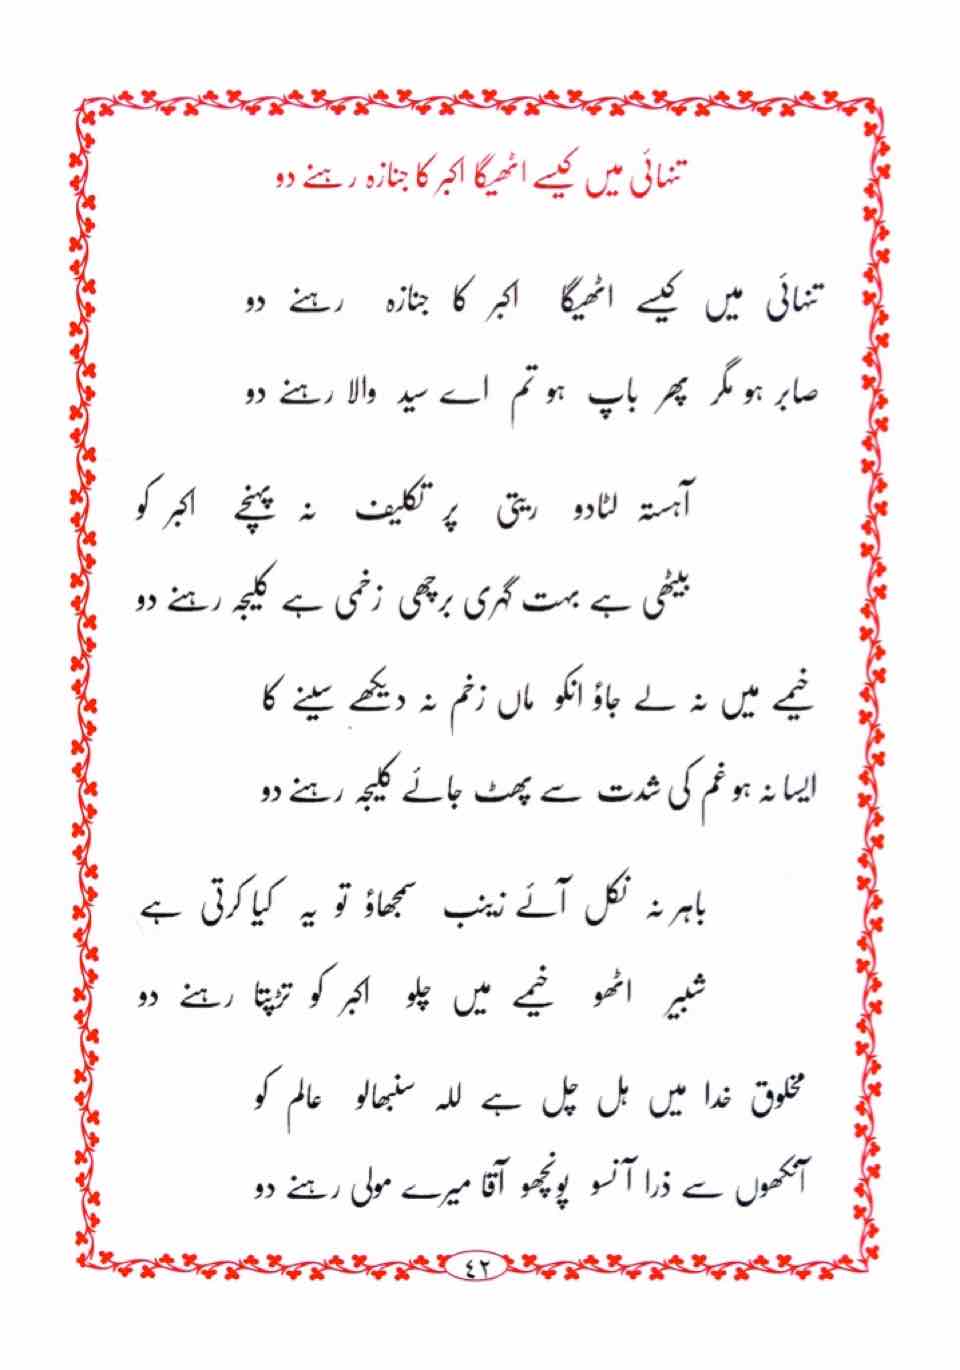 تنہائی میں کیسے اٹھیگا اکبر کا جنازہ رہنے دو
تنہائی میں کیسے اٹھیگا اکبر کا جنازہ رہنے دو
صابر ہو مگر پھر باپ ہو تم اے سید والا رہنے دو
آہستہ لٹادو ریتی پر تکلیف نہ پہنچے اکبر کو
بیٹھی ہے بہت گہری برچھی زخمی ہے کلیجہ رہنے دو
خیمے میں نہ لے جاؤ انکو ماں زخم نہ دیکھے سینے کا
ایسا نہ ہو غم کی شدت سے پھٹ جائے کلیجہ رہنے دو
باہر نہ نکل آئے زینب سمجھاؤ تو یہ کیا کرتی ہے
شبیر اٹھو خیمے میں چلو اکبر کو تڑپتا رہنے دو
مخلوق خدا میں ہل چل ہے للہ سنبھالو عالم کو
آنکھوں سے ذرا آنسو پونچھو آقا میرے مولی رہنے دو
٤٢